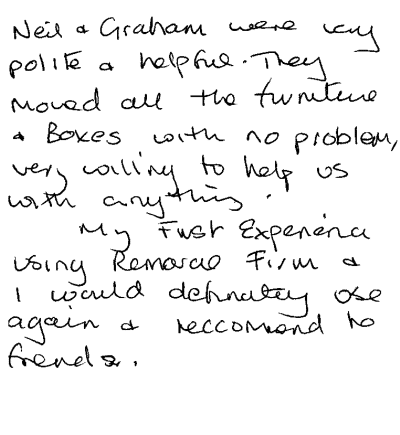 Neil & Graham were very
polite & helpful. They
moved all the furniture
& Boxes with no problem,
very willing to help us
with anything.
My First Experience
using Removal Firm &
I would definatey use
again & reccomend to
friends.